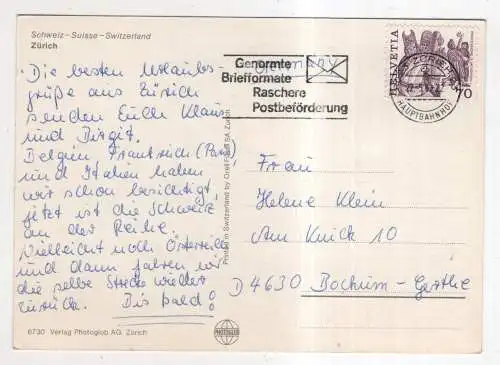 Schweiz - Suisse - Switzerland
Zürich
Die besten Urlaubs-
grüße aus Zürich
senden Euch Klaus
und Birgit.
Belgien, Frankreich (Paris)
und Italien haben
wir schon besichtigt,
jetzt ist die Schweiz
an der Reihe.
Vielleicht noch Österreich
und dann fahren wir
die selbe Strecke wieder
zurück. Bis bald!
6730 Verlag Photoglob AG, Zürich
Printed in Switzerland by Orell Füssli SA, Zürich
PHOTOGLOB
Germany
Genormte
Briefformate
Raschere
Postbeförderung
HAUPTBAHNHOF
HELVETIA
70
Frau
Helene Klein
Am Knick 10
D 4630 Bochum-Gerthe